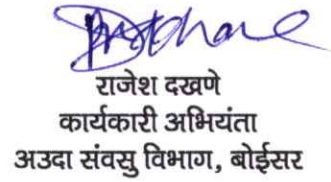 राजेश दखणे
कार्यकारी अभियंता
अउदा संवसु विभाग, बोईसर